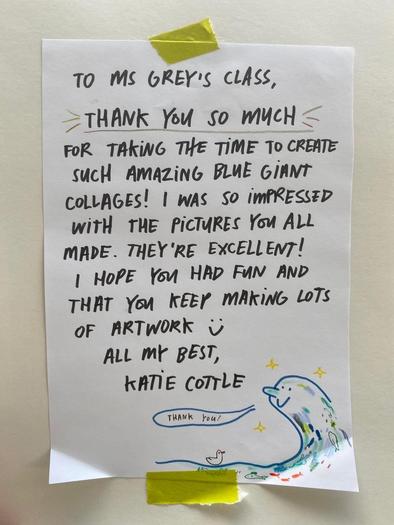 TO MS GREY'S CLASS,
THANK YOU SO MUCH
FOR TAKING THE TIME TO CREATE
SUCH AMAZING BLUE GIANT
COLLAGES! I WAS SO IMPRESSED
WITH THE PICTURES YOU ALL
MADE. THEY'RE EXCELLENT!
I HOPE YOU HAD FUN AND
THAT YOU KEEP MAKING LOTS
OF ARTWORK
ALL MY BEST,
KATIE COTTLE
THANK YOU!